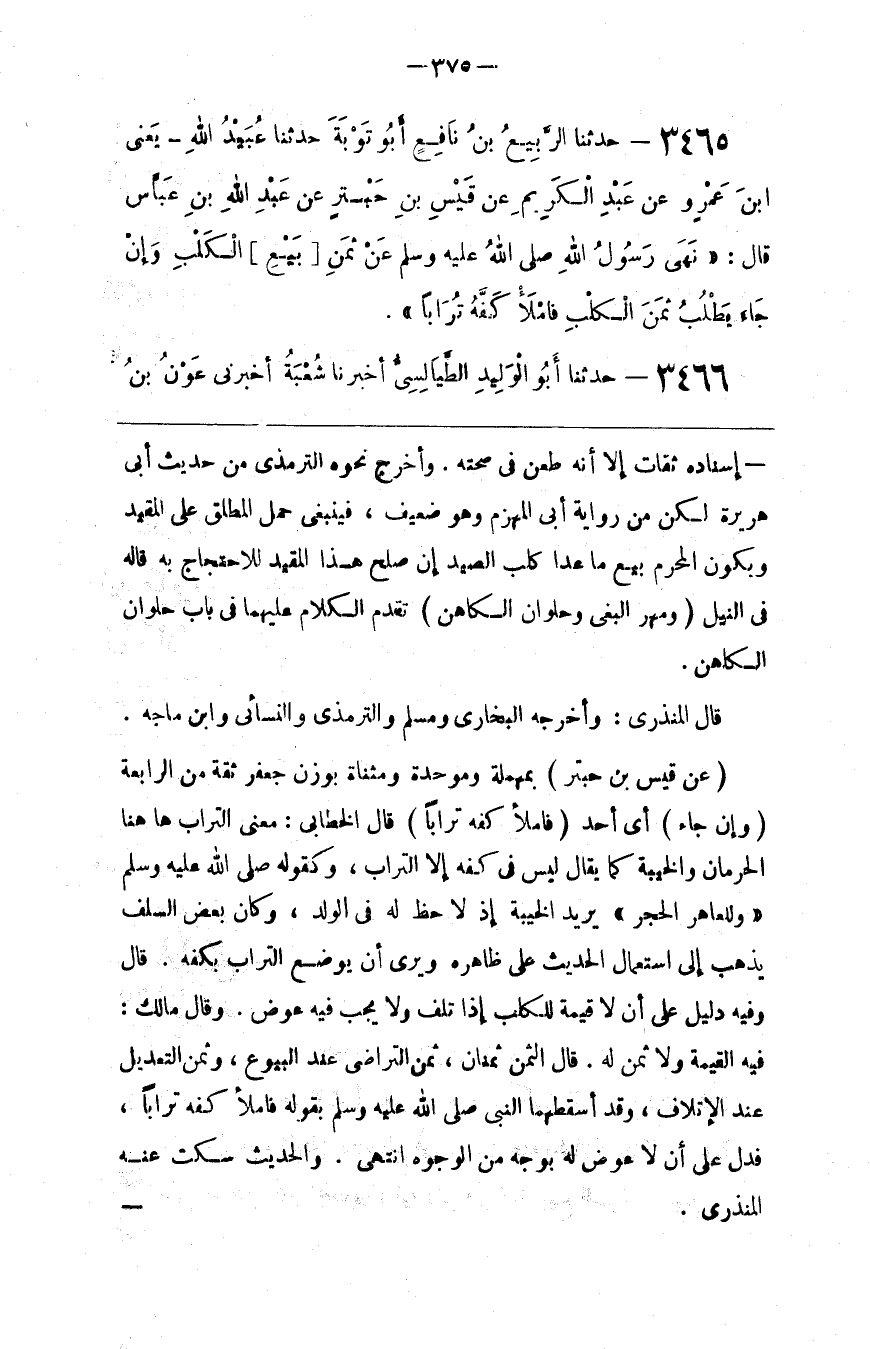 — ٣٧٥ —
٣٤٦٥ — حدثنا الرَّبِيعُ بنُ نَافِعٍ أَبُو تَوْبَةَ حدثنا عُبَيْدُ اللهِ – يَعنى
ابنَ عَمْرٍو عن عَبْدِ الْكَرِيمِ عن قَيْسِ بنِ حَبْتَرٍ عن عَبْدِ اللهِ بنِ عَبَّاس
قال : « نَهَى رَسُولُ اللهِ صلى اللهُ عليه وسلم عَنْ ثمَنِ [ بَيْعِ ] الْكَلْبِ وَإِنْ
جَاء يَطْلُبُ ثمَنَ الْكلْبِ فامْلَأْ كَفَّهُ تُرَاباً » .
٣٤٦٦ — حدثنا أَبُو الْوَلِيدِ الطَّيَالِسِىُّ أخبرنا شُعْبَةُ أخبرنى عَوْنُ بنُ
— إسناده ثقات إلا أنه طعن فى صحته . وأخرج نحوه الترمذى من حديث أبى
هريرة لكن من رواية أبى المهزم وهو ضعيف ، فينبغى حمل المطلق على المقيد
ويكون المحرم بيع ما عدا كلب الصيد إن صلح هذا المقيد للاحتجاج به قاله
فى النيل ( ومهر البغى وحلوان الكاهن ) تقدم الكلام عليهما فى باب حلوان
الكاهن .
قال المنذرى : وأخرجه البخارى ومسلم والترمذى والنسائى وابن ماجه .
( عن قيس بن حبتر ) بمهملة وموحدة ومثناة بوزن جعفر ثقة من الرابعة
( وإن جاء ) أى أحد ( فاملأ كفه تراباً ) قال الخطابى : معنى التراب ها هنا
الحرمان والخيبة كما يقال ليس فى كفه إلا التراب ، وكقوله صلى الله عليه وسلم
« وللعاهر الحجر » يريد الخيبة إذ لا حظ له فى الولد ، وكان بعض السلف
يذهب إلى استعمال الحديث على ظاهره ويرى أن يوضع التراب بكفه . قال
وفيه دليل على أن لا قيمة للكلب إذا تلف ولا يجب فيه عوض . وقال مالك :
فيه القيمة ولا ثمن له . قال الثمن ثمنان ، ثمن التراضى عند البيوع ، وثمن التعديل
عند الإتلاف ، وقد أسقطهما النبى صلى الله عليه وسلم بقوله فاملأ كفه تراباً ،
فدل على أن لا عوض له بوجه من الوجوه انتهى . والحديث سكت عنه
المنذرى . —